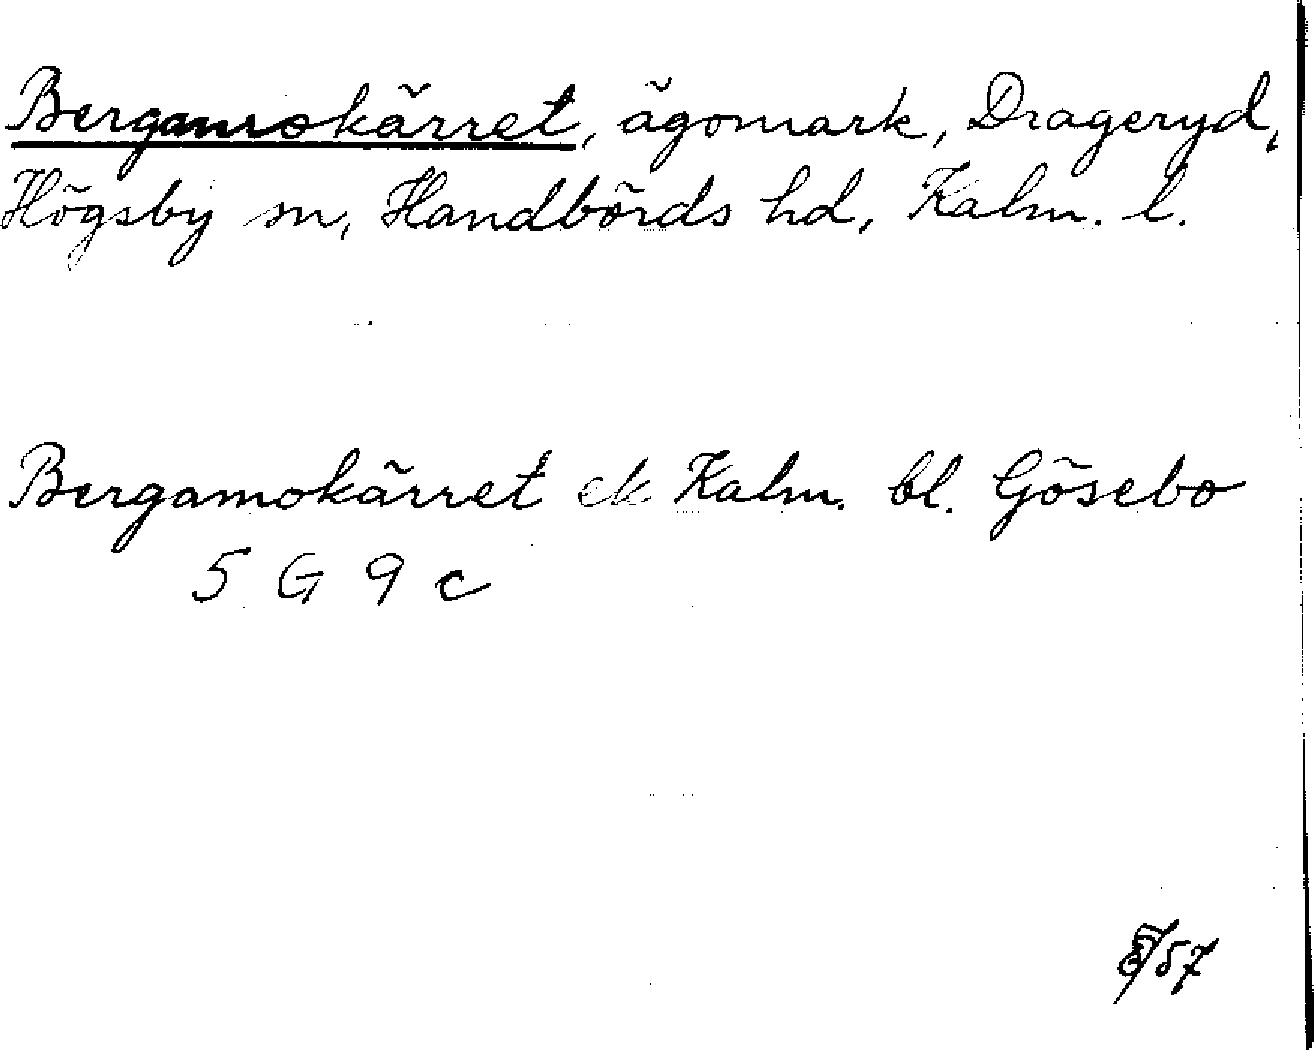 Bergamokärret, ägomark, Drageryd,
Högsby sn, Handbörds hd, Kalm. l.
Bergamokärret ek Kalm. bl. Gösebo
5 G 9 c
/57